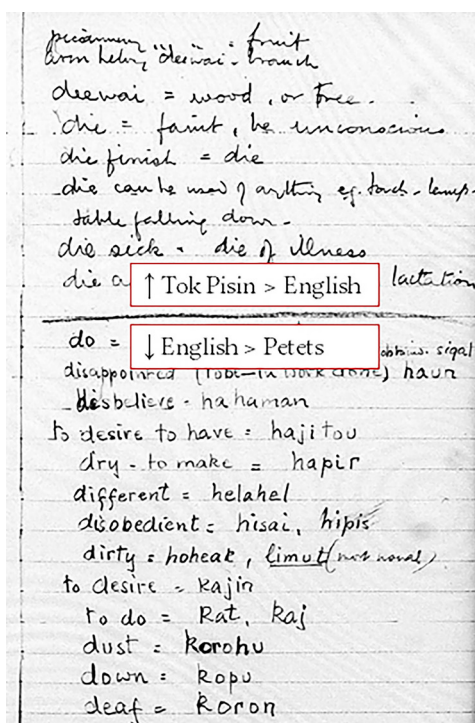 = fruit
helong "deewai - branch
deewai = wood, or tree.
die = faint, be unconscious
die finish = die
die can be used of anything eg. torch - lamp -
table falling down -
die sick - die of illness
die a
↑ Tok Pisin > English
lactation
do =
↓ English > Petets
sigal
disappointed (Tobe-in work done) haun
disbelieve - hahaman
to desire to have = hajitou
dry - to make = hapir
different = helahel
disobedient = hisai, hipis
dirty = hoheak, limut (not usual)
to desire - kajin
to do = Rat, kaj
dust = korohu
down = kopu
deaf = koron